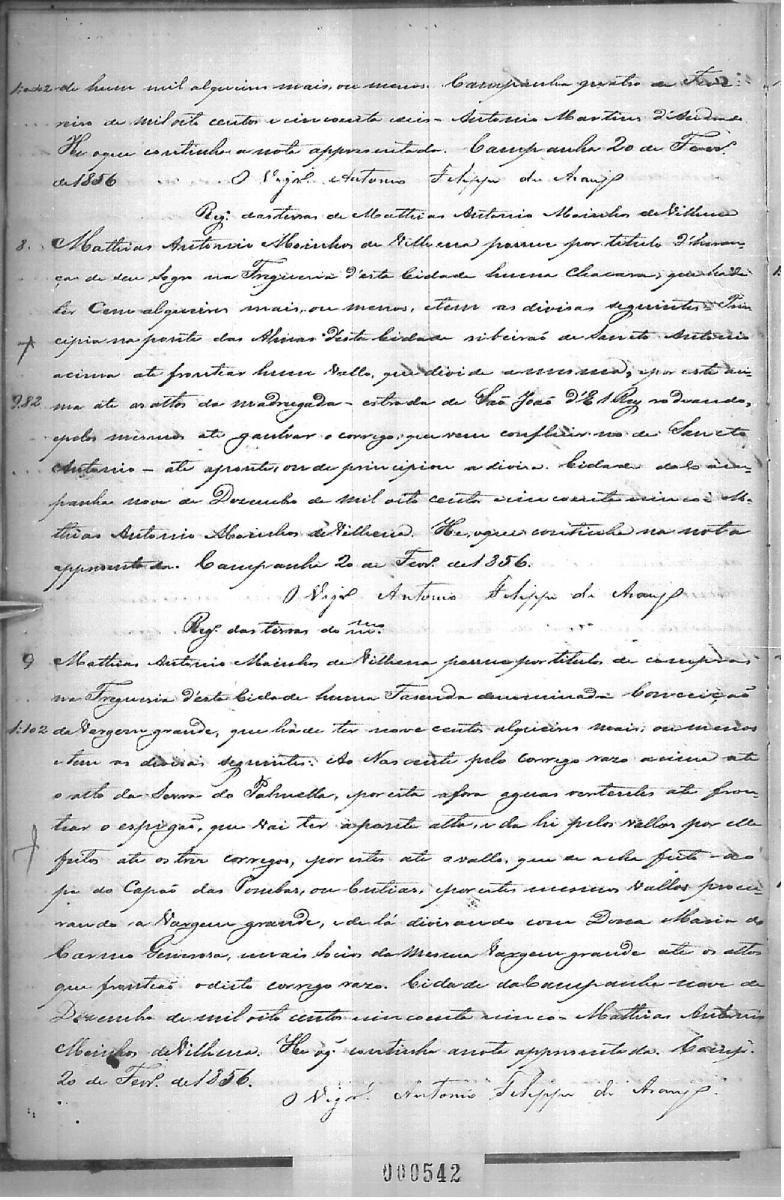 1:042 de hum mil alqueires mais, ou menos. Campanha quatro de Feve:
reiro de mil oito centos e cincoenta e seis - Antonio Martins d'Andrade
He oque continha a nota appresentada. Campanha 20 de Fever.º
de 1856 O Vigr.º Antonio Felippe de Araujo
Reg.º das terras de Mathias Antonio Moinhos de Vilhena
8. Mathias Antonio Moinhos de Vilhena possue por titulo d'heran-
ça de seu Sogro na Freguezia d'esta Cidade huma Chacara, que hade
ter Cem alqueires mais, ou menos, etem as divisas seguintes - Prin
cipia na ponte das Almas d'esta Cidade ribeiraõ de Santo Antonio
acima até frontiar hum Vallo, que divide a mesma, e por este aci-
982 ma até os altos da madrugada - estrada de Saõ Joaõ d'El Rey rodeando,
epelos mesmos até ganhar o corrego, que vem confluir no de Sancto
Antonio - até aponte, onde principiou a divisa. Cidade da Cam-
panha nove de Dezembro de mil oito centos e cincoenta e cinco - Ma-
thias Antonio Moinhos de Vilhena. He, oque continha na nota
appresentada. Campanha 20 de Fevr.º de 1856.
O Vigr.º Antonio Felippe de Araujo
Reg.º das terras do m.mo
9 Mathias Antonio Moinhos de Vilhena possue por titulos de compras
na Freguezia d'esta Cidade huma Fasenda denominada Conceiçaõ
1:102 da Vargem grande, que hade ter nove centos alqueires mais, ou menos
etem as divisas seguintes: Ao Nascente pelo corrego razo acima até
o alto da Serra do Palmella, por esta afora aguas vertentes até fron
tear o espigaõ, que vai ter aponte alta, e da hi pelos vallos por elle
feitos até os tres corregos, por estes até o vallo, que se acha feito ao
pé do Capaõ das Pombas, ou Cutias, e por estes mesmos Vallos procu-
rando a Vargem grande, e de lá divisando com Dona Maria do
Carmo Generosa, e mais Socios da mesma Vargem grande até os altos
que frontiaõ o dicto corrego razo. Cidade da Campanha nove de
Dezembro de mil oito centos e cincoenta e cinco - Mathias Antonio
Moinhos de Vilhena. He oq. continha a nota appresentada. Camp.ª
20 de Fevr.º de 1856.
O Vigr.º Antonio Felippe de Araujo.
000542